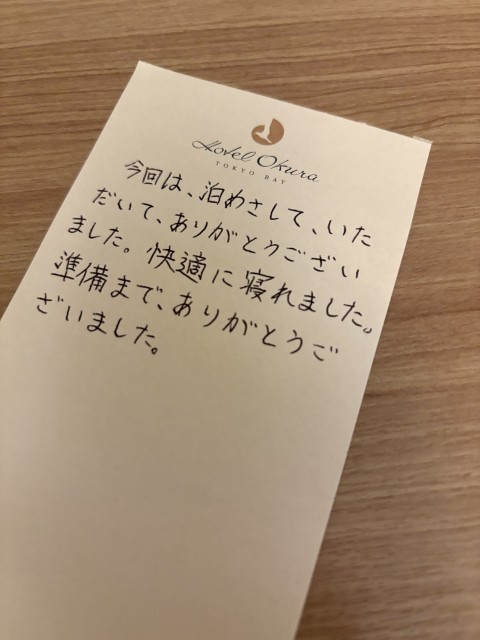 Hotel Okura
TOKYO BAY
今回は、泊めさして、いた
だいて、ありがとうござい
ました。快適に寝れました。
準備まで、ありがとうご
ざいました。